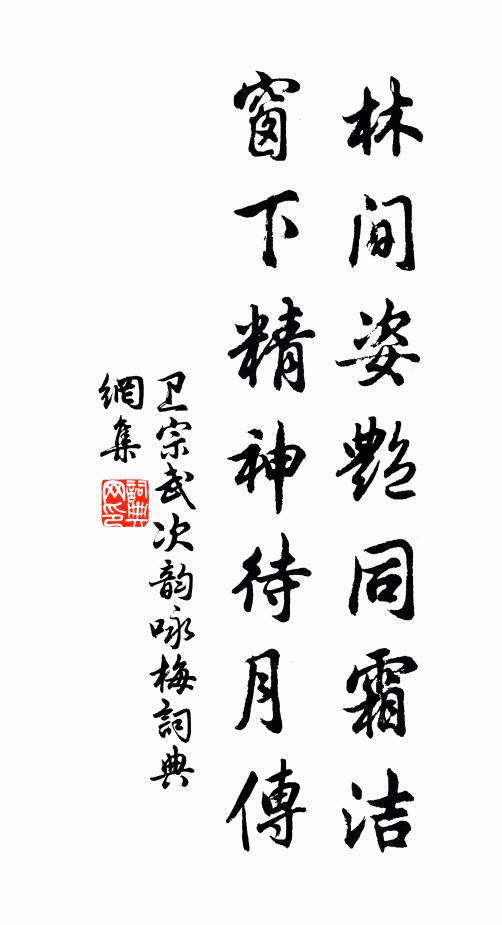 林间姿艷同霜洁
窗下精神待月傳
卫宗武次韵咏梅詞典
網集
詞典
网印